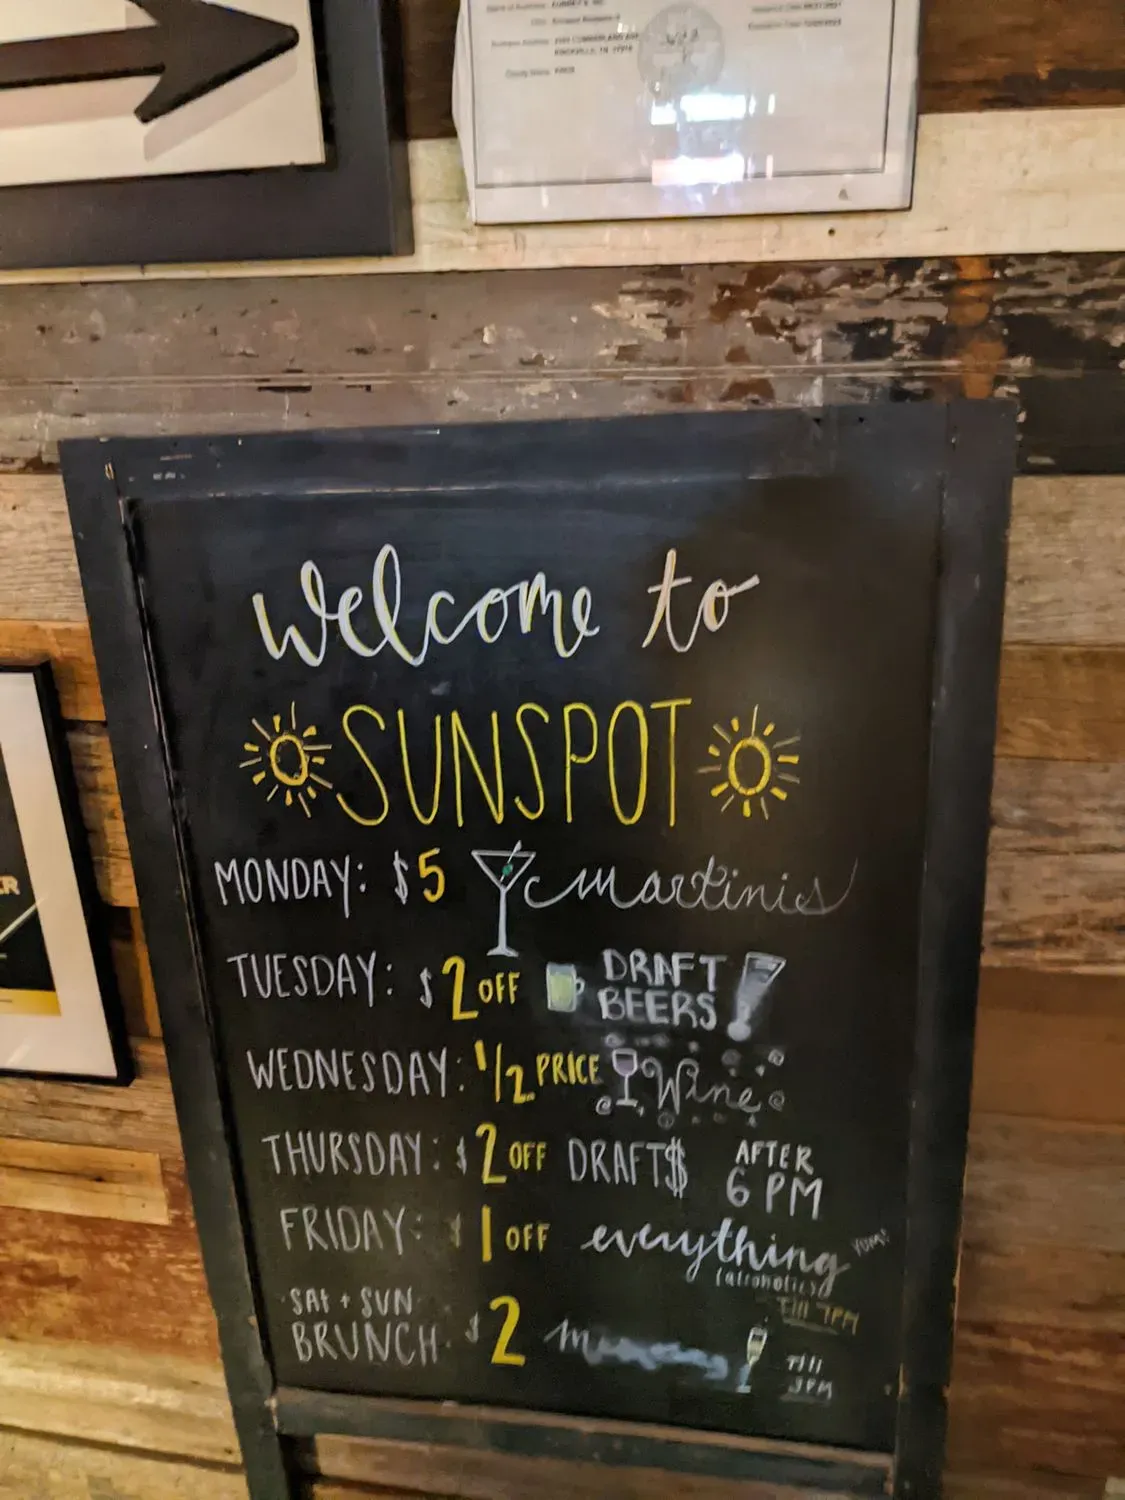 KNOXVILLE, TN 37916
ER
welcome to
SUNSPOT
MONDAY: $5 Martinis
TUESDAY: $2 OFF DRAFT BEERS
WEDNESDAY: 1/2 PRICE Wine
THURSDAY: $2 OFF DRAFT$ AFTER 6 PM
FRIDAY: $1 OFF everything YUM!
(alcoholic)
Till 7PM
SAT + SUN
BRUNCH $2
Till
3PM